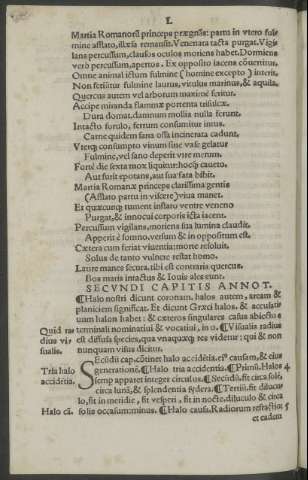 L
Martia Romanorū princeps prægnās: partu in vtero ful⸗
mine afflato, illęsa remansit. Venenata tacta purgat. Vigi
lans percussum, clausos oculos moriens habet. Dormiens
verò percussum, apertos. Ex opposito iacens cōuertitur.
Omne animal ictum fulmine (homine excepto) interit.
Non feriūtur fulmine laurus, vitulus marinus, & aquila.
Quercus autem vel arborum maximè feritur.
Accipe miranda flammæ portenta trisulcæ.
Dura domat, damnum mollia nulla ferunt.
Intacto ferulo, ferrum consumitur intus.
Carne quidem sana ossa cincerata cadunt.
Vtręq; consumpto vinum sine vase gelatur
Fulmine, vel sano deperit vre merum.
Fortè die sexta mox liquitur: hocq; caueto.
Aut furit epotans, aut sua fata bibit.
Martia Romanæ princeps clarissima gentis
(Afflato partu in viscere) viua manet.
Et quæcunq; tument inflato ventre veneno
Purgat, & innocui corporis icta iacent.
Percussum vigilans, moriens sua lumina claudit.
Apperit è somno, versum & in oppositum est.
Cætera cum feriat viuentia: morte resoluit.
Solus de tanto vulnere restat homo.
Laure manes secura, tibi est contraria quercus.
Bos maris intactus & Iouis ales erunt.
SECVNDI CAPITIS ANNOT.
¶Halo nostri dicunt coronam. halos autem, aream &
planiciem significat. Et dicunt Græci halos. & accusati⸗
uum halon habet: & cæteros singulares casus abiectos s
terminali nominatiui & vocatiui, in o. ¶Visualis radius
est diffusa species, qua vnaquæq; res videtur: qui & non
nunquam visus dicitur.
Quid ra⸗
dius vi⸗
sualis.
Secūdū cap. cōtinet halo accidētia. eiꝰ causam, & eius
generationē. ¶Halo tria accidentia. ¶Primū. Halos
semp apparet integer circulus. ¶Secūdū. fit circa solē,
circa lunā, & splendentia sydera. ¶Tertiū. fit dilucu
lo, fit in meridie, fit vesperi, fit in nocte. diluculo & circa
solis occasum: minus. ¶Halo causa. Radiorum refractio:
et eadem
Tria halo
accidētia.
Halo cā.
4
5